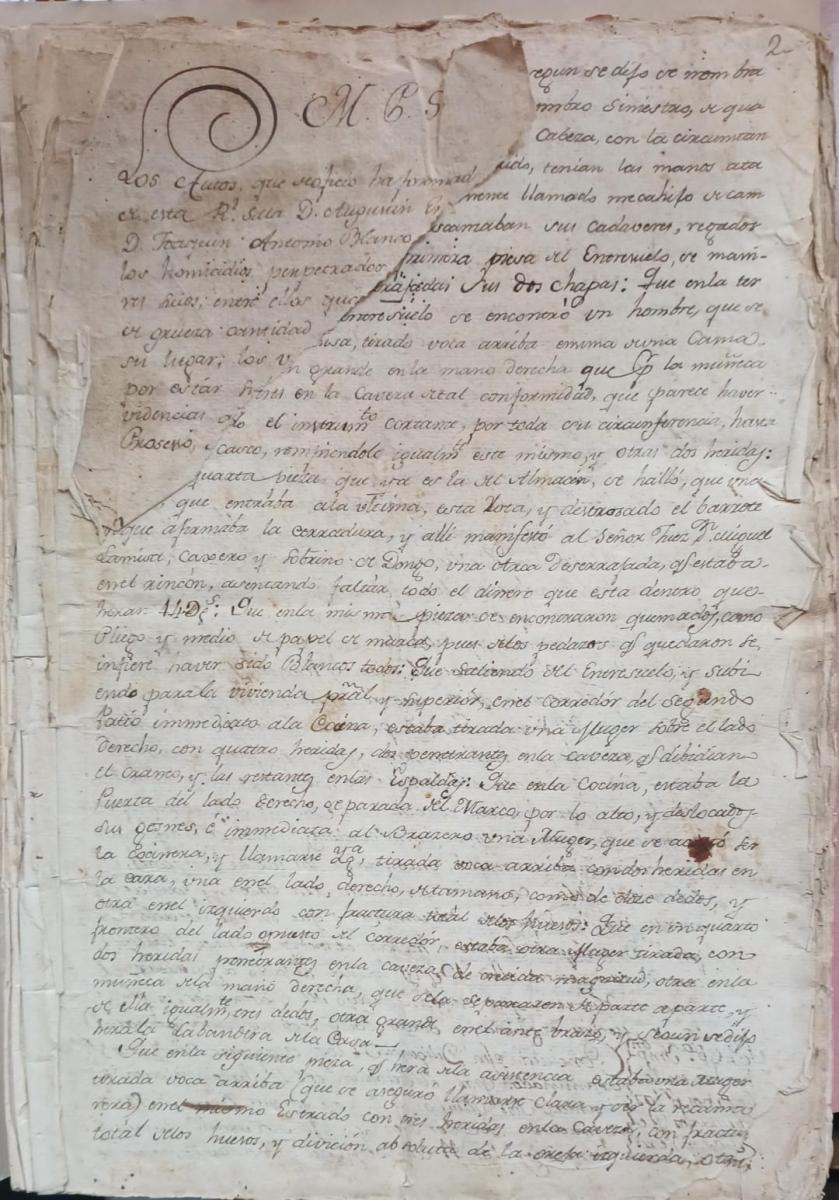 2
M. P. S
según se dijo se nombra
mbro Siniestro, y qua
Cabeza, con la circunstan
tenian las manos ata
Los Autos, que de oficio ha formad
mente llamado mecahilo de cam
en esta Rl. Sala D. Augustin
camaban sus cadaveres, regados
D. Joaquin Antonio Blanco
primera piesa del Entresuelo, se mani-
los homicidios perpetrados
sus dos chapas: Que en la ter
res hijos; entre ellos
entresuelo se encontró un hombre, que se
de grueza cantidad
tirado voca arriba en cima de una Cama
su lugar; los
grande en la mano derecha que la muñeca
por estar
tres en la Caveza de tal conformidad, que parece haver
videncias
el instrumto cortante, por toda su circunferencia, hasta
Proseño,
casco, rompiendole igualmte este mismo, y otras dos heridas:
quarta pieza que ya es la del Almacen, se halló, que una
que entraba a la ultima, esta rota, y destrosado el barrote
que afirmaba la cerradura, y allí manifestó al Señor Juez Dn. Miguel
Lanuza, Caxero y Sobrino de Dongo, una otra deserrajada, qe estaba
en el rincón, asentando faltar todo el dinero que esta dentro, que
heran 14 Ds: Que en la misma pieza se encontraron quemados, como
Pliego y medio de papel de marca, pues de los pedazos qe quedaron se
infiere haver sido Blancos todos: Que saliendo del Entresuelo, y subi
endo para la vivienda pral. y superior, en el corredor del Segundo
Patio immediato a la Cocina, estaba tirada una Muger sobre el lado
derecho, con quatro heridas, dos penetrantes en la caveza, qe dibidian
el craneo, y las restantes en las Espaldas: Que en la Cocina, estaba la
Puerta del lado derecho, separada del Marco, por lo alto, y deslocados
sus gosnes, é immediata al Brazero una Muger, que se ser
la Cocinera, y llamarse tirada voca arriba con dos heridas en
la cara, una en el lado derecho, de tamaño, como de doze dedos, y
otra en el izquierdo con fractura total de los huesos: Que en un quarto
frontero del lado opuesto del corredor, estaba otra Muger tirada, con
dos heridas penetrantes en la caveza, de crecida magnitud, otra en la
muñeca de la mano derecha, que se la separaron de parte a parte, y
de ella igualmte tres dedos, otra grande en el ante brazo, y segun se dijo
hera la Labandera de la Casa
Que en la siguiente pieza, qe hera de la asistencia estaba una Muger
tirada voca arriba (que se aseguró llamarse Clara y ser la recama
rera) en el mismo Estrado con tres heridas en la Caveza, con fractura
total de los huesos, y división absoluta de la oreja izquierda, otras